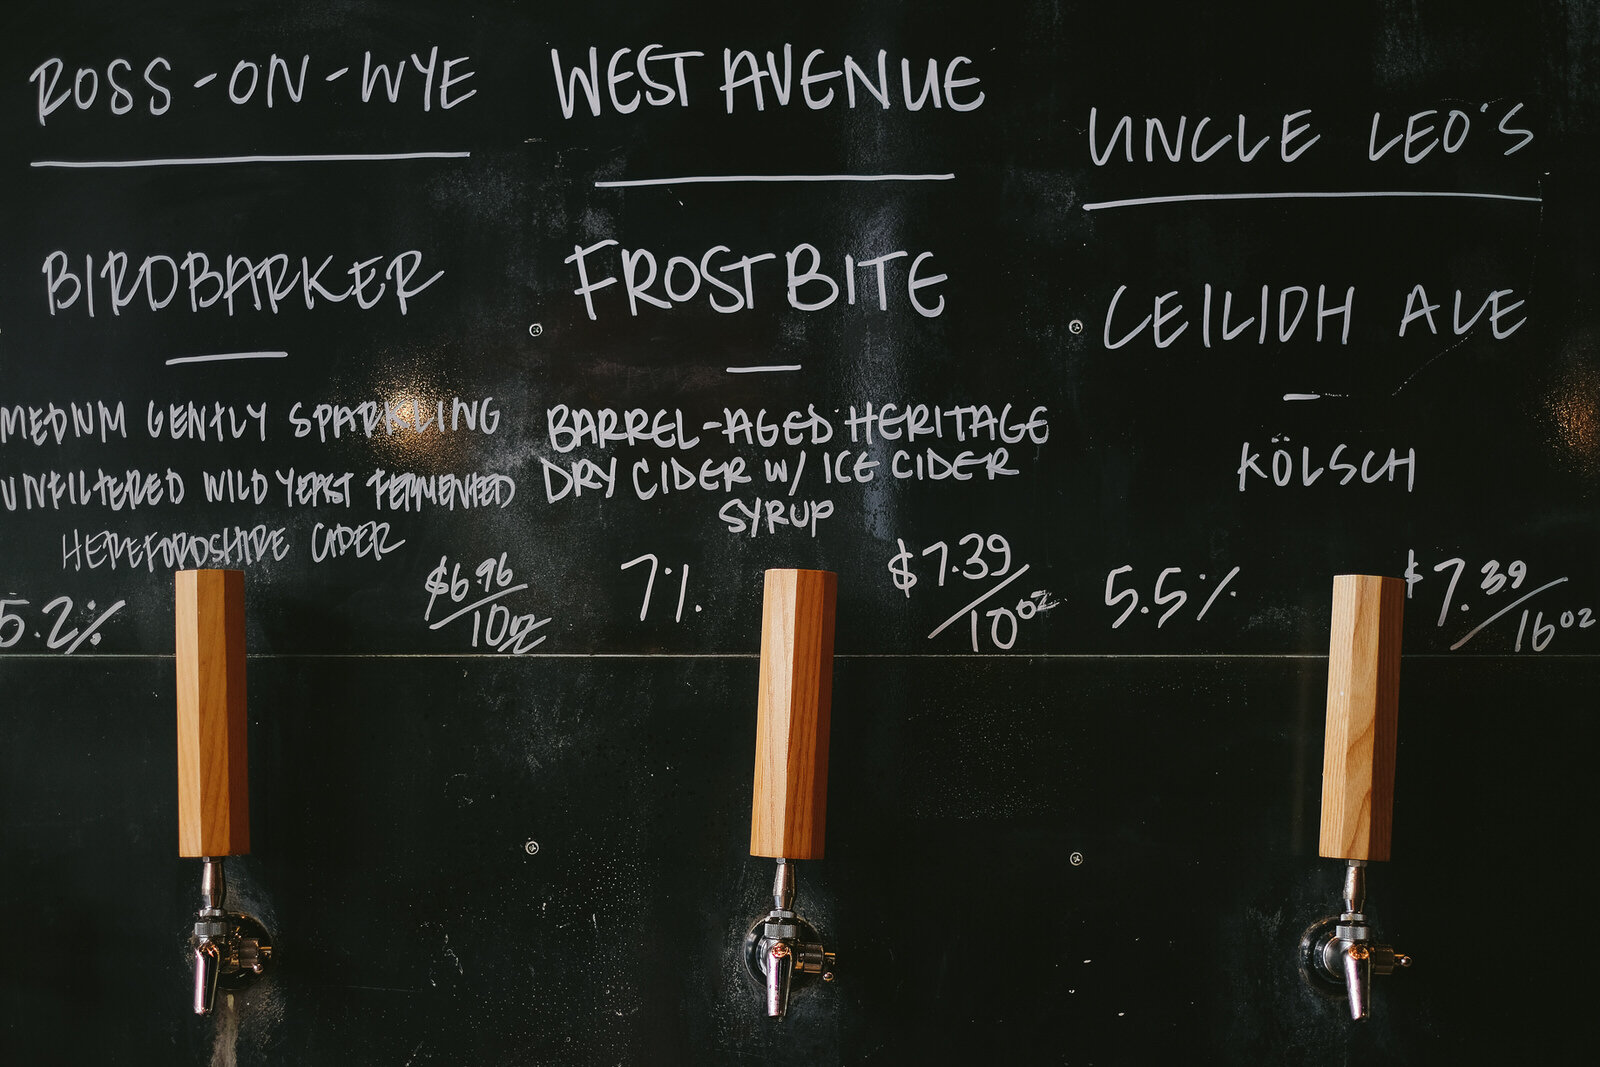 ROSS-ON-WYE
BIRDBARKER
MEDIUM GENTLY SPARKLING
UNFILTERED WILD YEAST FERMENTED
HEREFORDSHIRE CIDER
5.2%
$6.96/10oz
WEST AVENUE
FROSTBITE
BARREL-AGED HERITAGE
DRY CIDER W/ ICE CIDER
SYRUP
7%
$7.39/10oz
UNCLE LEO'S
CEILIDH ALE
KÖLSCH
5.5%
$7.39/16oz